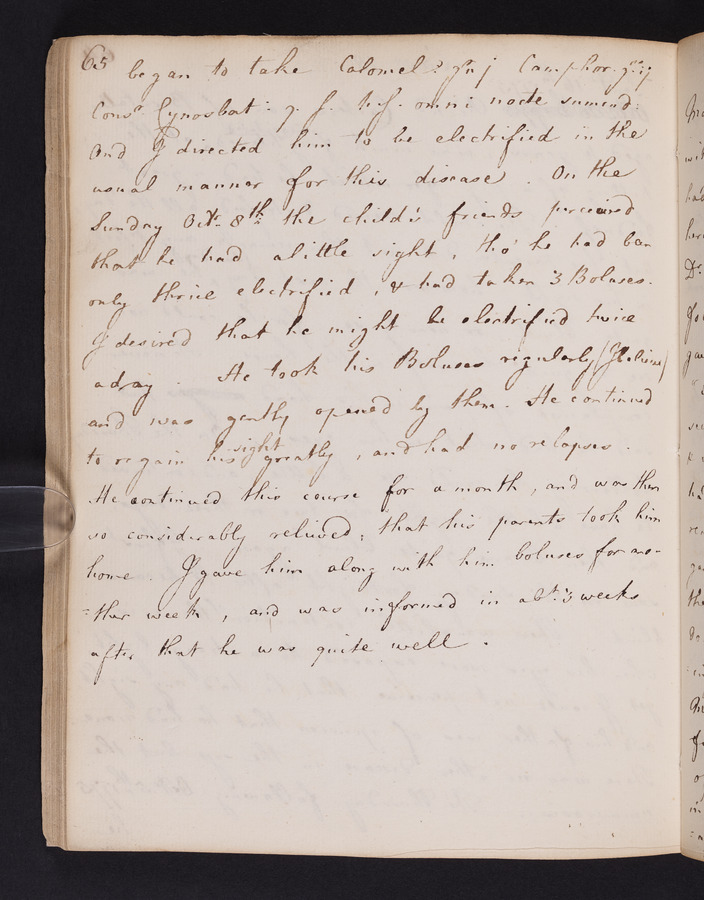 65
began to take Calomel: grn j Camphor. grn ij
Consr. Cynosbat: q. f. b. f. omni nocte sumend:
And I directed him to be electrified in the
usual manner for this disease. On the
Sunday Octr. 8th. the child's friends perceived
that he had a little sight, tho' he had ben
only thrice electrified, & had taken 3 Boluses.
I desired that he might be electrified twice
a day. He took his Boluses regularly (I believe)
and was gently opened by them. He continued
to regain his sight greatly, and had no relapses.
He continued this course for a month, and was then
so considerably relieved, that his parents took him
home. I gave him along with him boluses for ano-
=ther week, and was informed in abt. 3 weeks
after that he was quite well.